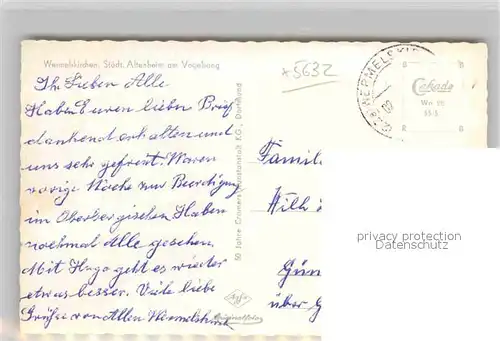 Wermelskirchen, Städt. Altenheim am Vogelsang
+5632
WERMELSKIR
Cekade
We 16
55.3
Ihr Lieben Alle
Haben Euren lieben Brief
dankend erhalten und
uns sehr gefreut. Waren
vorige Woche zur Beerdigung
im Oberbergischen Haben
nochmal Alle gesehen.
Mit Hugo geht es wieder
etwas besser. Viele liebe
Grüße von Allen Wermelskirch
50 Jahre Cramers Kunstanstalt KG., Dortmund
Agfa
Originalfoto
Famili
Willi
Gün
über G
privacy protection
Datenschutz